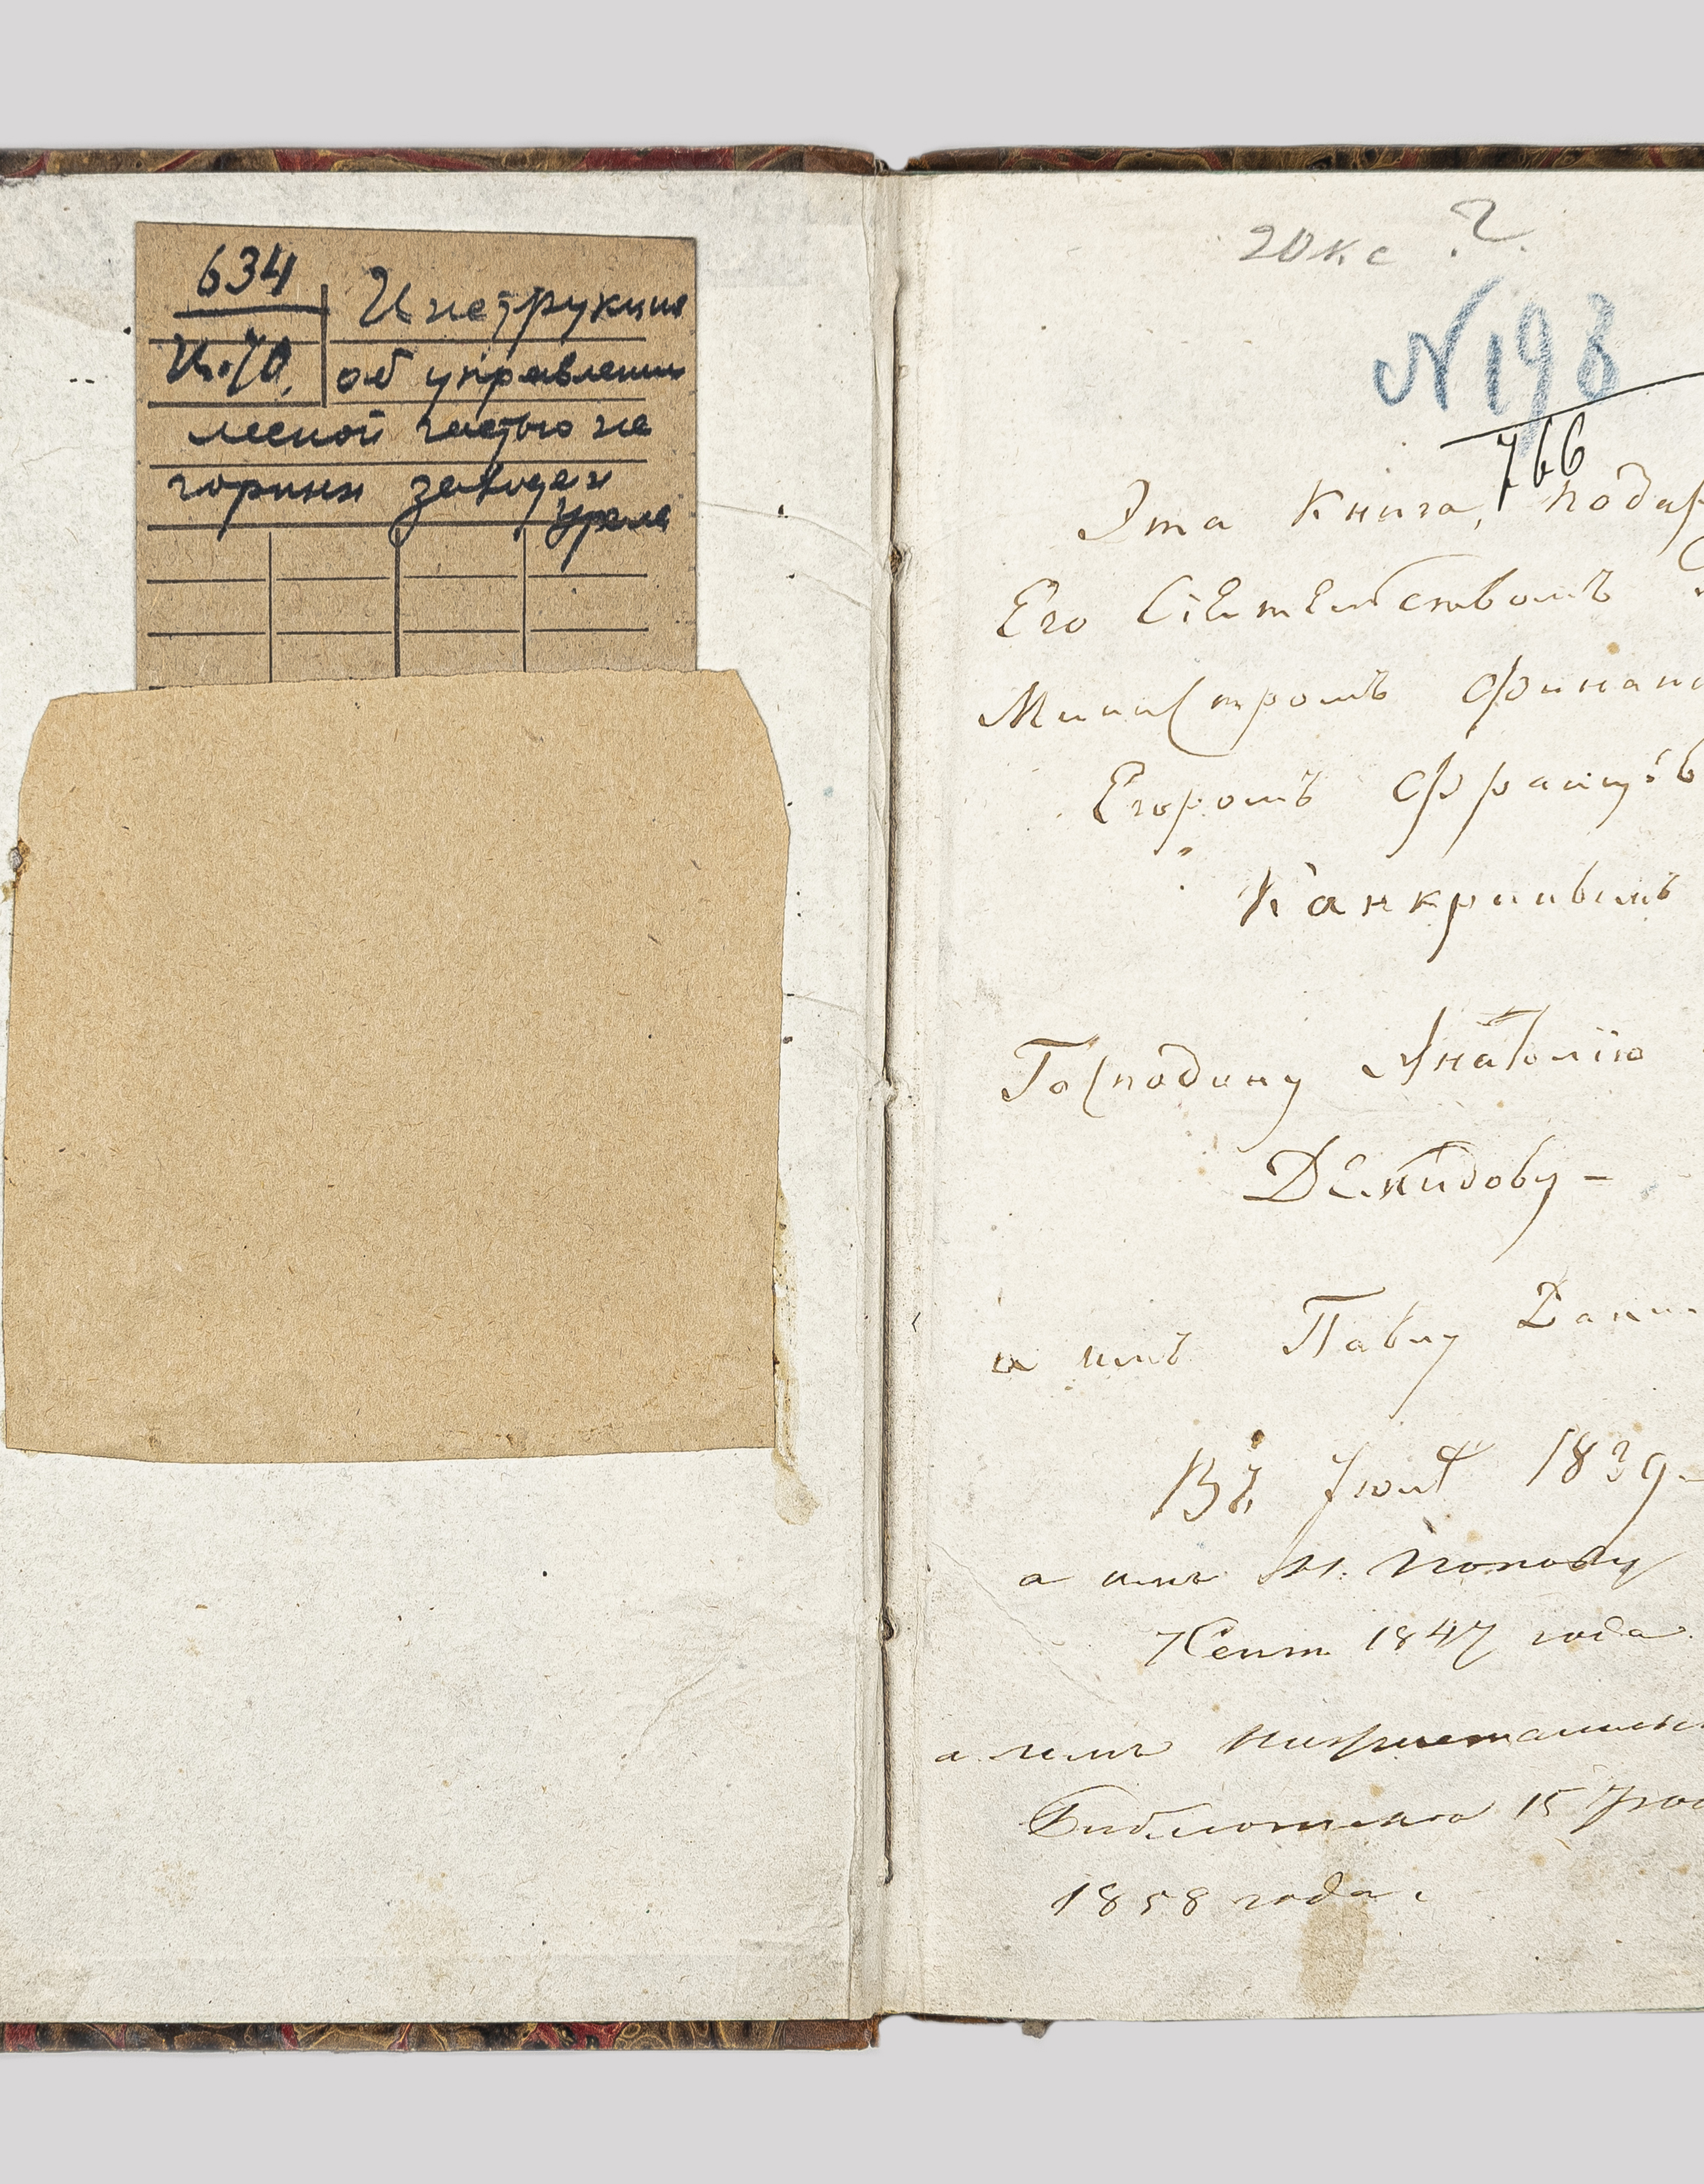 634
И-70.
Инструкция
об управлении
лесной частью на
горных заводах
Урала
20 к с ?
N 198
766
Эта Книга, подар
Его Сіятельствомъ
Министромъ Финан
Егоромъ Францов
Канкринымъ
Господину Анатолію
Демидову -
а имъ Павлу Дани
Въ Іюнѣ 1839 -
а имъ М. Попову
7 Сент. 1847 года
а имъ Нижнетагильс
Библиотека 15
1858 года.